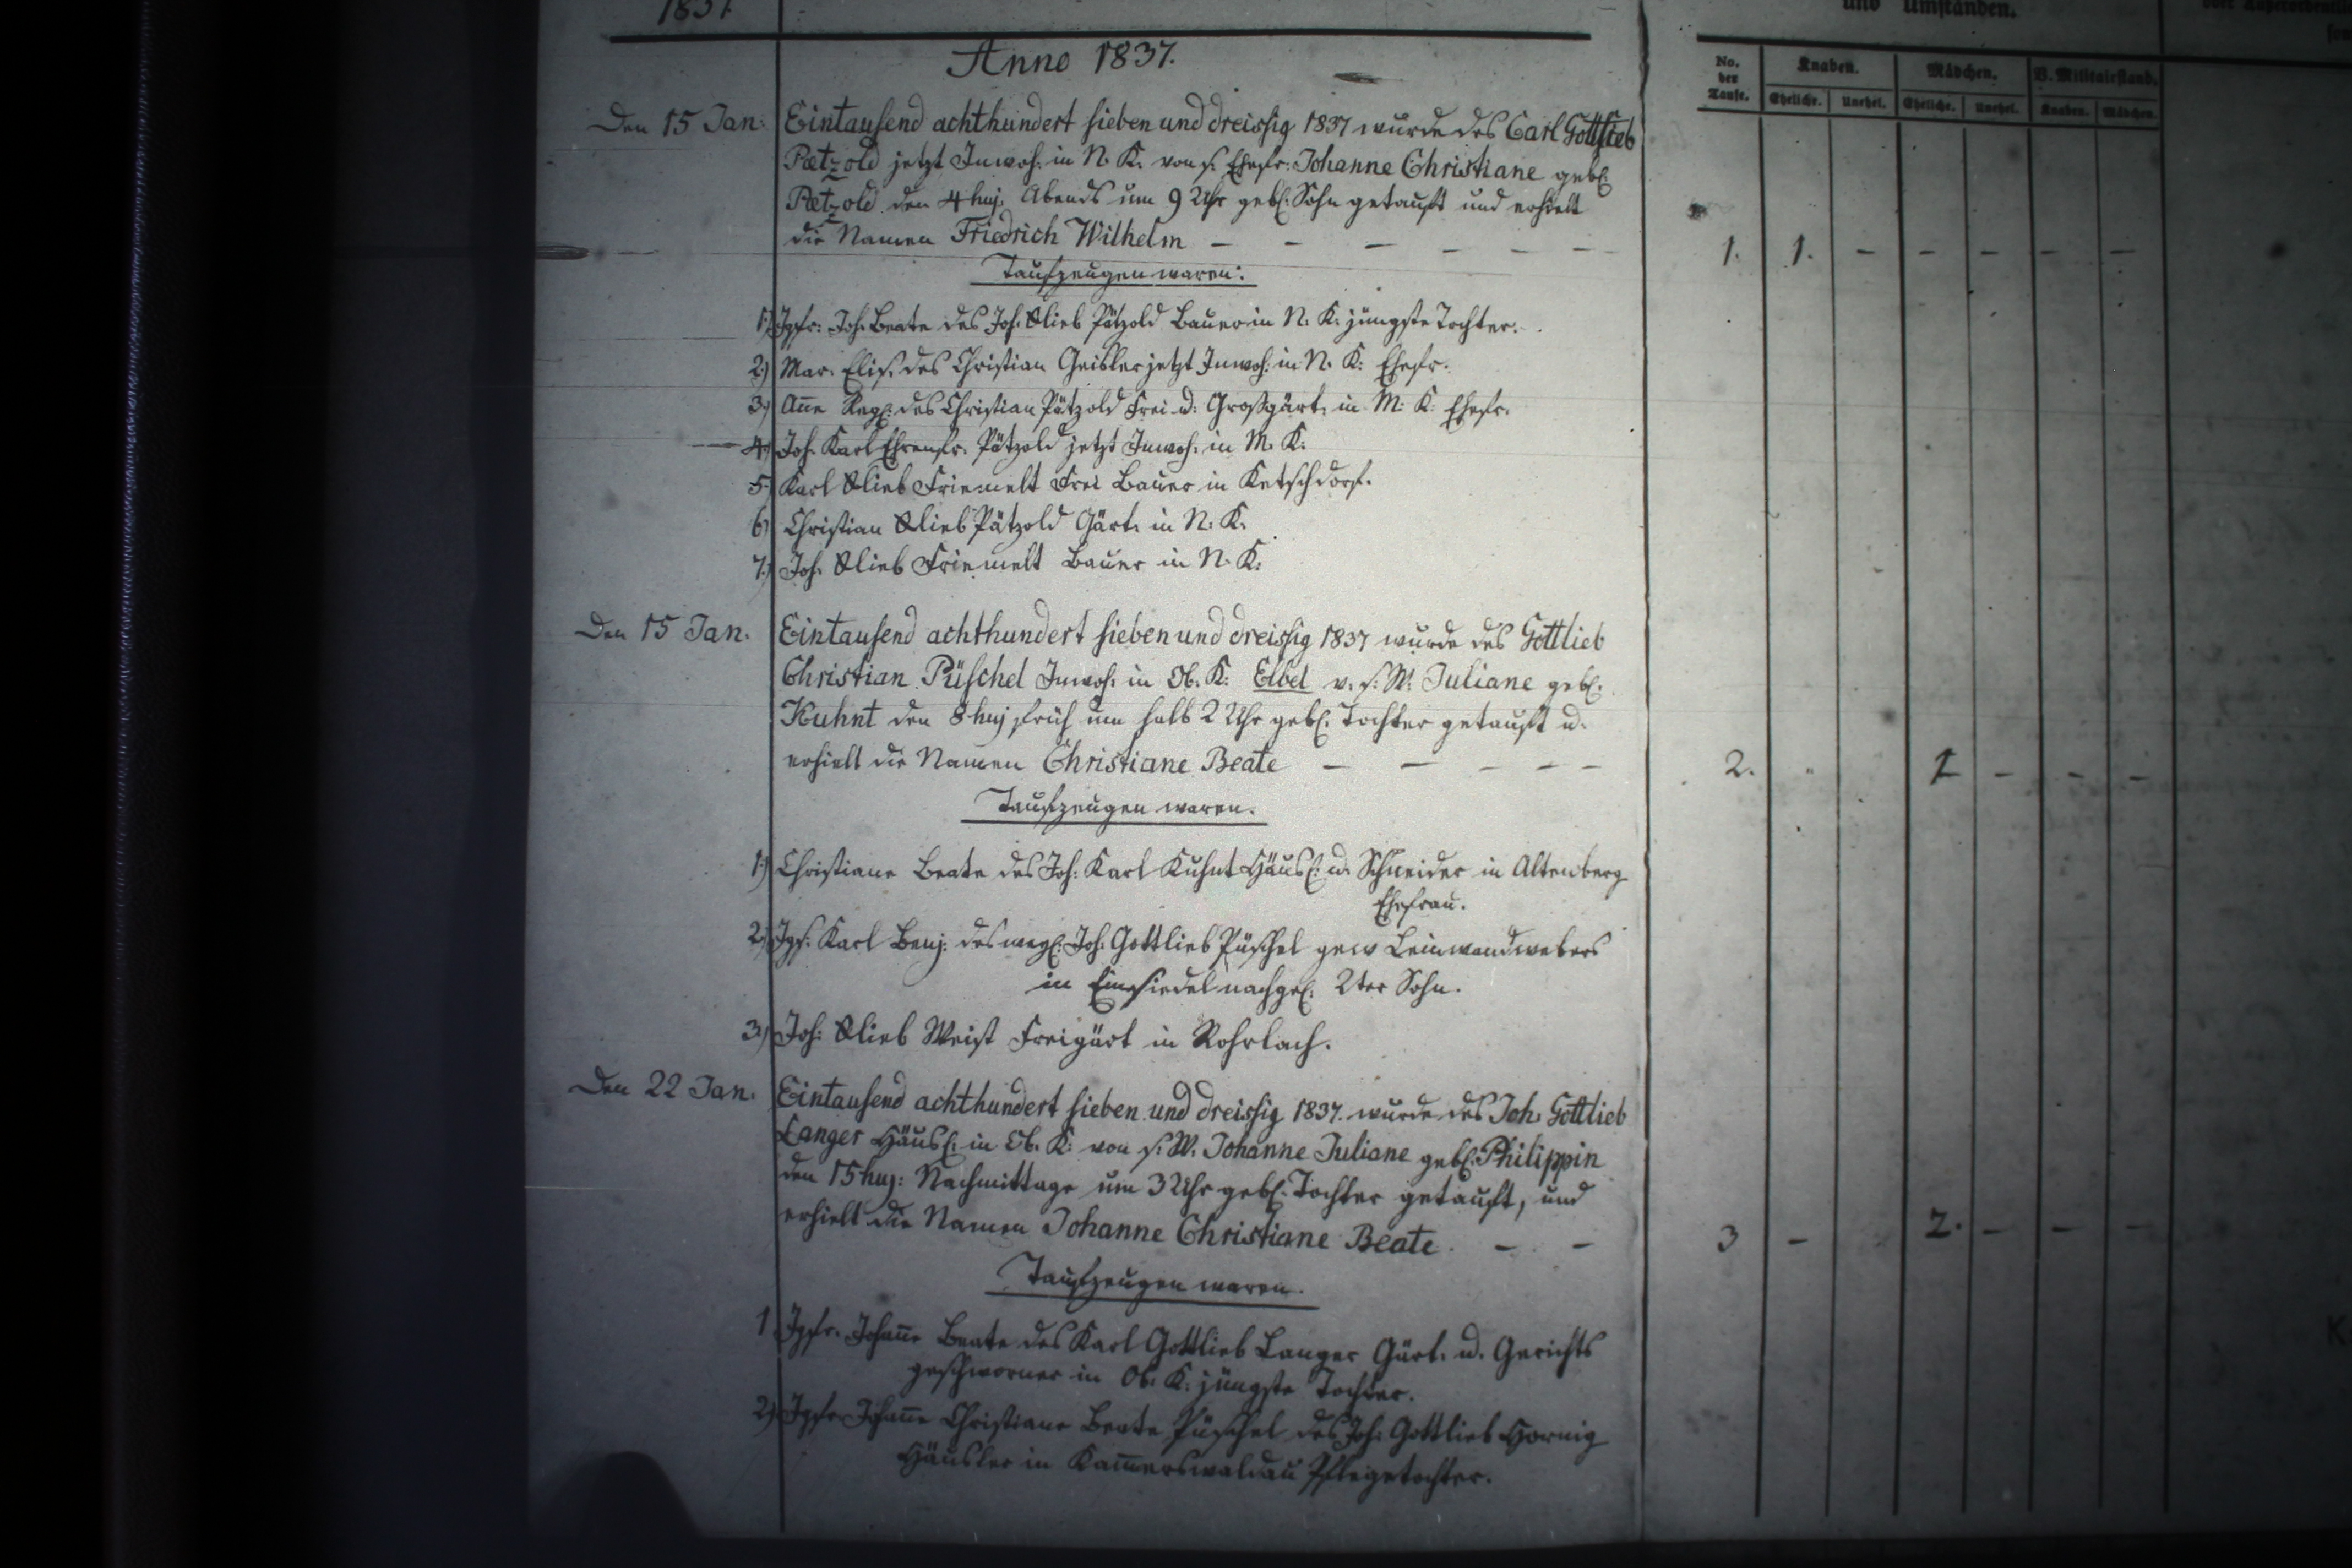 1837.
Anno 1837.
Den 15 Jan: Eintausend achthundert sieben und dreissig 1837 wurde des Carl Gottlieb
Pætzold jetzt Inwoh: in N. K. von s. Ehefr: Johanne Christiane geb.
Pætzold den 4 huj. Abends um 9 Uhr geb. Sohn getauft und erhielt
die Namen Friedrich Wilhelm – – – – – –
Taufzeugen waren:
1.) Jgfr: Joh. Beate des Joh. Glieb Pätzold Bauer in N. K. jüngste Tochter.
2.) Mar. Elis. des Christian Geisler jetzt Inwoh: in N. K: Ehefr.
3.) Añe Reg: des Christian Pätzold Frei u: Großgärt. in M. K. Ehefr.
4.) Joh. Karl Ehrenfr. Pätzold jetzt Inwoh: in M. K.
5.) Karl Glieb Friemelt Frei Bauer in Ketschdorf.
6.) Christian Glieb Pätzold Gärt. in N. K.
7.) Joh. Glieb Friemelt Bauer in N. K:
Den 15 Jan. Eintausend achthundert sieben und dreissig 1837 wurde des Gottlieb
Christian Püschel Inwoh: in Ob. K: Elbel v. s: W: Juliane geb.
Kuhnt den 8 huj früh um halb 2 Uhr geb. Tochter getauft u.
erhielt die Namen Christiane Beate – – – – –
Taufzeugen waren.
1.) Christiane Beate des Joh: Karl Kuhnt Häusl: u. Schneider in Altenberg
Ehefrau.
2.) Jgs. Karl Benj: des weyl: Joh. Gottlieb Püschel gew Leinwandwebers
in Einsiedel nachgel: 2ter Sohn.
3.) Joh: Glieb Weist Freigärt in Rohrlach.
Den 22 Jan. Eintausend achthundert sieben und dreissig 1837. wurde des Joh. Gottlieb
Langer Häusl: in Ob. K: von s. W. Johanne Juliane geb. Philippin
den 15 huj: Nachmittage um 3 Uhr geb. Tochter getauft, und
erhielt die Namen Johanne Christiane Beate. – –
Taufzeugen waren.
1 Jgfr. Johañe Beate des Karl Gottlieb Langer Gärt. u. Gerichts
geschworner in Ob. K: jüngste Tochter.
2.) Jgfr Johañe Christiane Beate Püschel des Joh: Gottlieb Hornig
Häusler in Kam̃erswaldau Pflegetochter.
und Umständen.
No. der Taufe. Knaben. Mädchen. B. Militairstand.
Eheliche. Unehel. Eheliche. Unehel. Knaben. Mädchen.
1. 1. – – – – –
2. 1 – – –
3 – 2. – – –